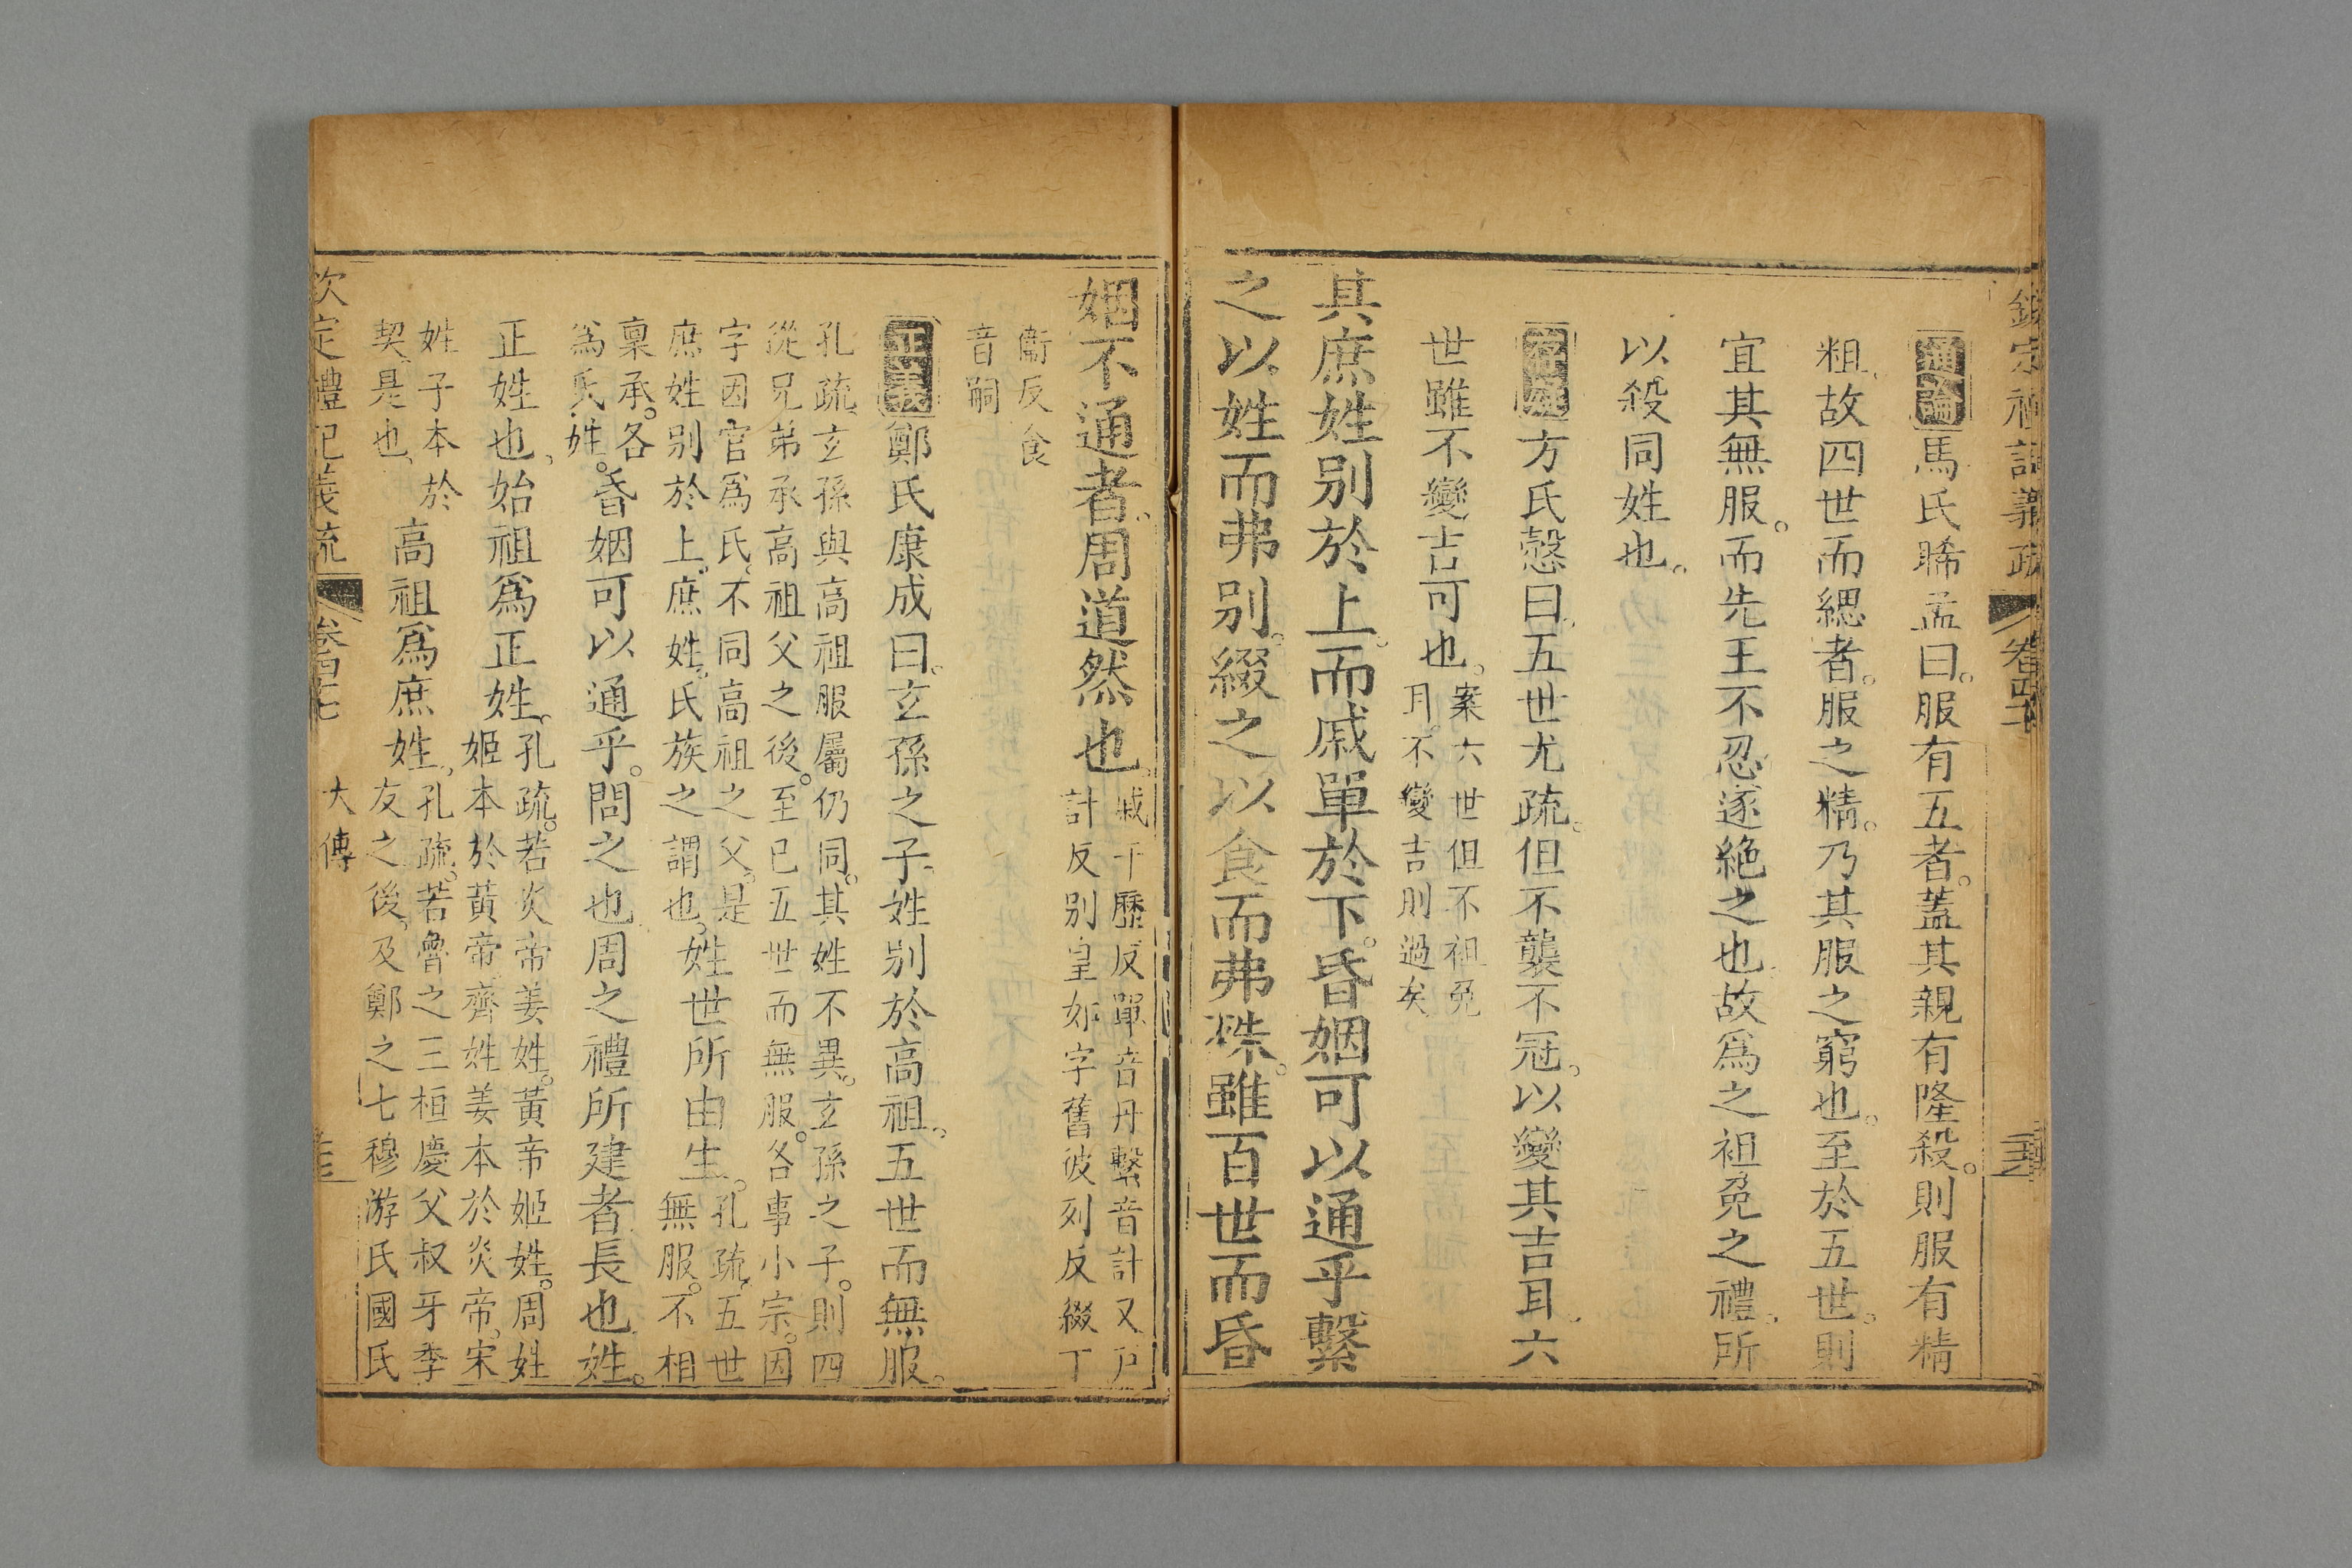 通論馬氏睎孟曰服有五者蓋其親有隆殺則服有精
粗故四世而緦者服之精乃其服之窮也至於五世則
宜其無服而先王不忍遂絶之也故爲之袒免之禮所
以殺同姓也
方氏慤曰五世尤疏但不襲不冠以變其吉耳六
世雖不變吉可也
案六世但不袒免
耳不變吉則過矣
其庶姓别於上而戚單於下昏姻可以通乎繫
之以姓而弗别綴之以食而弗殊雖百世而昏
姻不通者周道然也
戚千歷反單音丹繫音計又戶
計反别皇如字舊彼列反綴丁
衞反食
音嗣
正義鄭氏康成曰玄孫之子姓别於高祖五世而無服
孔疏玄孫與高祖服屬仍同其姓不異玄孫之子則四
從兄弟承高祖父之後至已五世而無服各事小宗因
字因官爲氏不同高祖之父是
庶姓别於上庶姓氏族之謂也
姓世所由生
孔疏五世
無服不相
稟承各
爲氏姓
昏姻可以通乎問之也周之禮所建者長也姓
正姓也始祖爲正姓
孔疏若炎帝姜姓黃帝姬姓周姓
姬本於黃帝齊姓姜本於炎帝宋
姓子本於
契是也
高祖爲庶姓
孔疏若魯之三桓慶父叔牙季
友之後及鄭之七穆游氏國氏
欽定禮記義疏
卷四十七
大傳